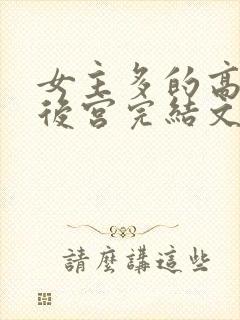 女主多的高
後宮完結文
請麼講這些